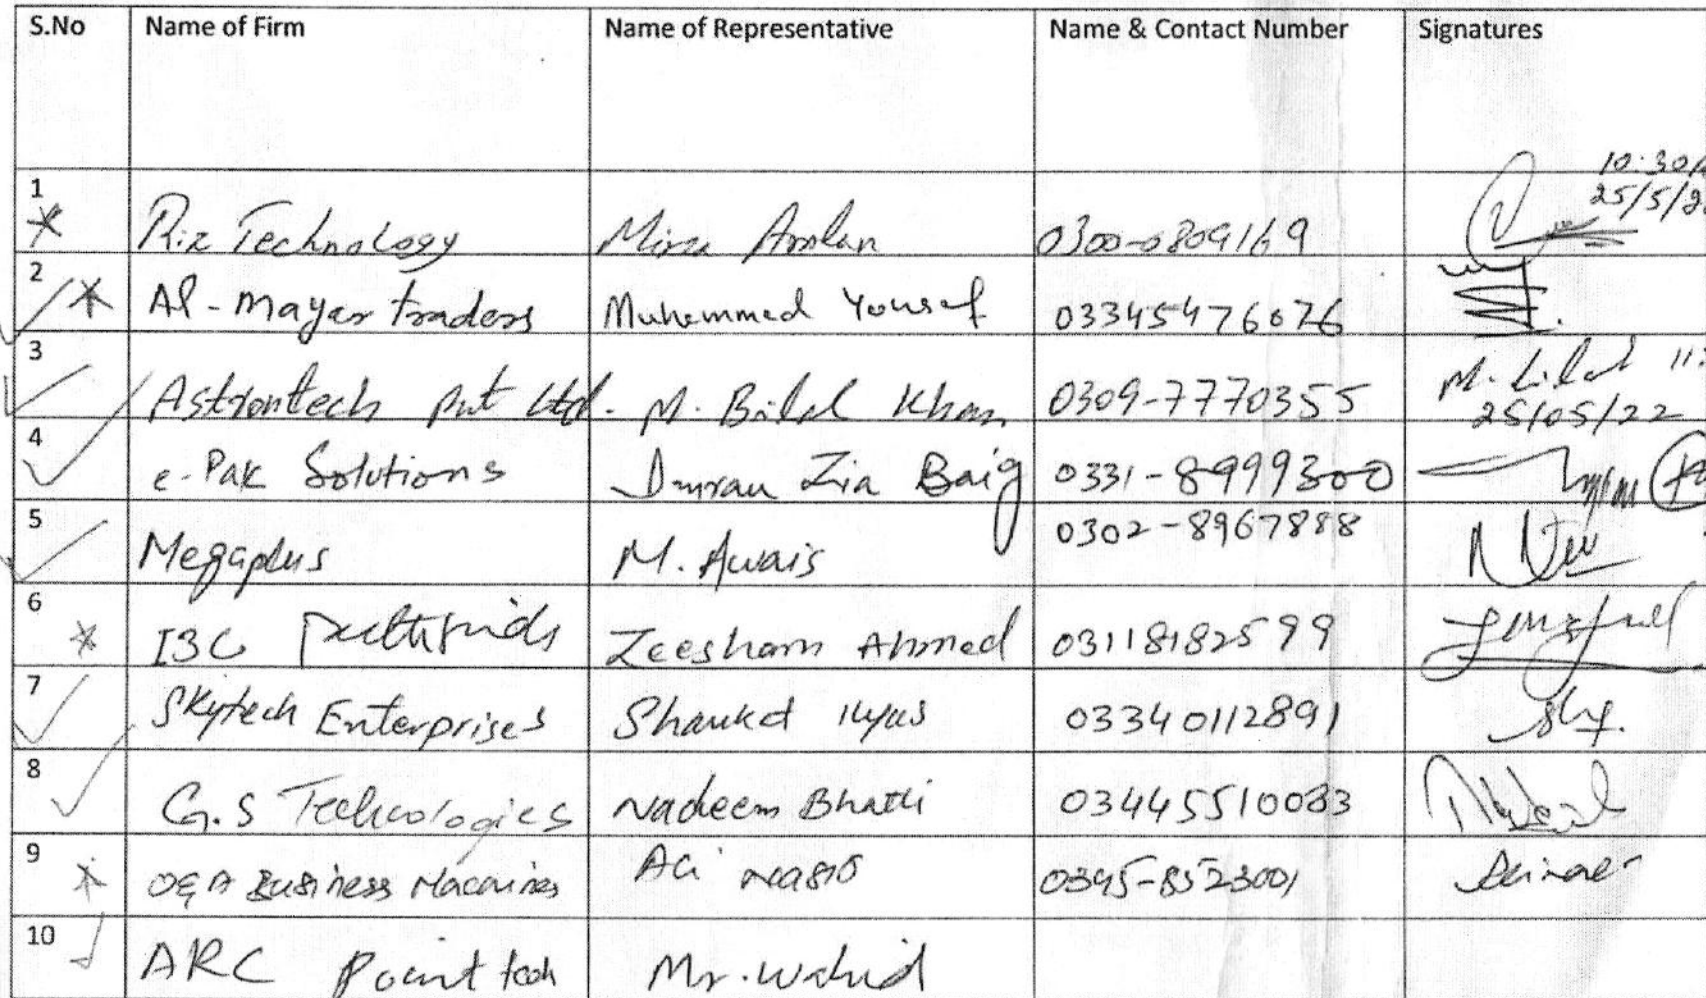 S.No Name of Firm Name of Representative Name & Contact Number Signatures
10:30
25/5/2
1 Riz Technology Mirza Arslan 0300-0809169
2 Al-Mayar traders Muhammed Yousaf 03345476076
3 Astrontech Pvt Ltd. M. Bilal Khan 0309-7770355 M. Bilal 11:
25/05/22
4 e-Pak Solutions Imran Zia Baig 0331-8999300
5 Megaplus M. Awais 0302-8967888
6 Zeesham Ahmed 03118182599
7 Skytech Enterprises Shaukat Ilyas 03340112891
8 G.S Technologies Nadeem Bhatti 03445510033
9 Business Ali 0345-8523001
10 ARC Point tech Mr. Wahid